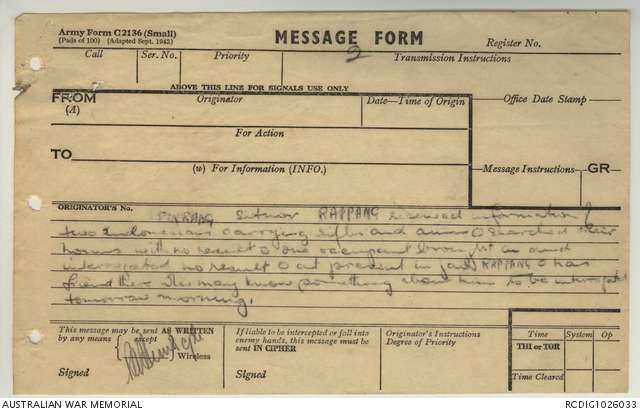 Army Form C2136 (Small)
(Pads of 100) (Adapted Sept. 1942)
MESSAGE FORM
Register No.
2
Call Ser. No. Priority Transmission Instructions
ABOVE THIS LINE FOR SIGNALS USE ONLY
FROM
(A)
Originator
Date—Time of Origin
Office Date Stamp
For Action
TO
(w) For Information (INFO.)
Message Instructions
GR
ORIGINATOR'S No.
PINRANG RAPPANG received information of
two Indonesians carrying rifles and ammo O searched their
houses with no result O one occupant brought in and
interrogated no result O at present in jail RAPPANG O has
friend there who may know something about him to be
tomorrow morning.
This message may be sent AS WRITTEN
by any means except
Wireless
Signed
If liable to be intercepted or fall into
enemy hands, this message must be
sent IN CIPHER
Signed
Originator's Instructions
Degree of Priority
Time System Op
THI or TOR
Time Cleared
AUSTRALIAN WAR MEMORIAL
RCDIG1026033